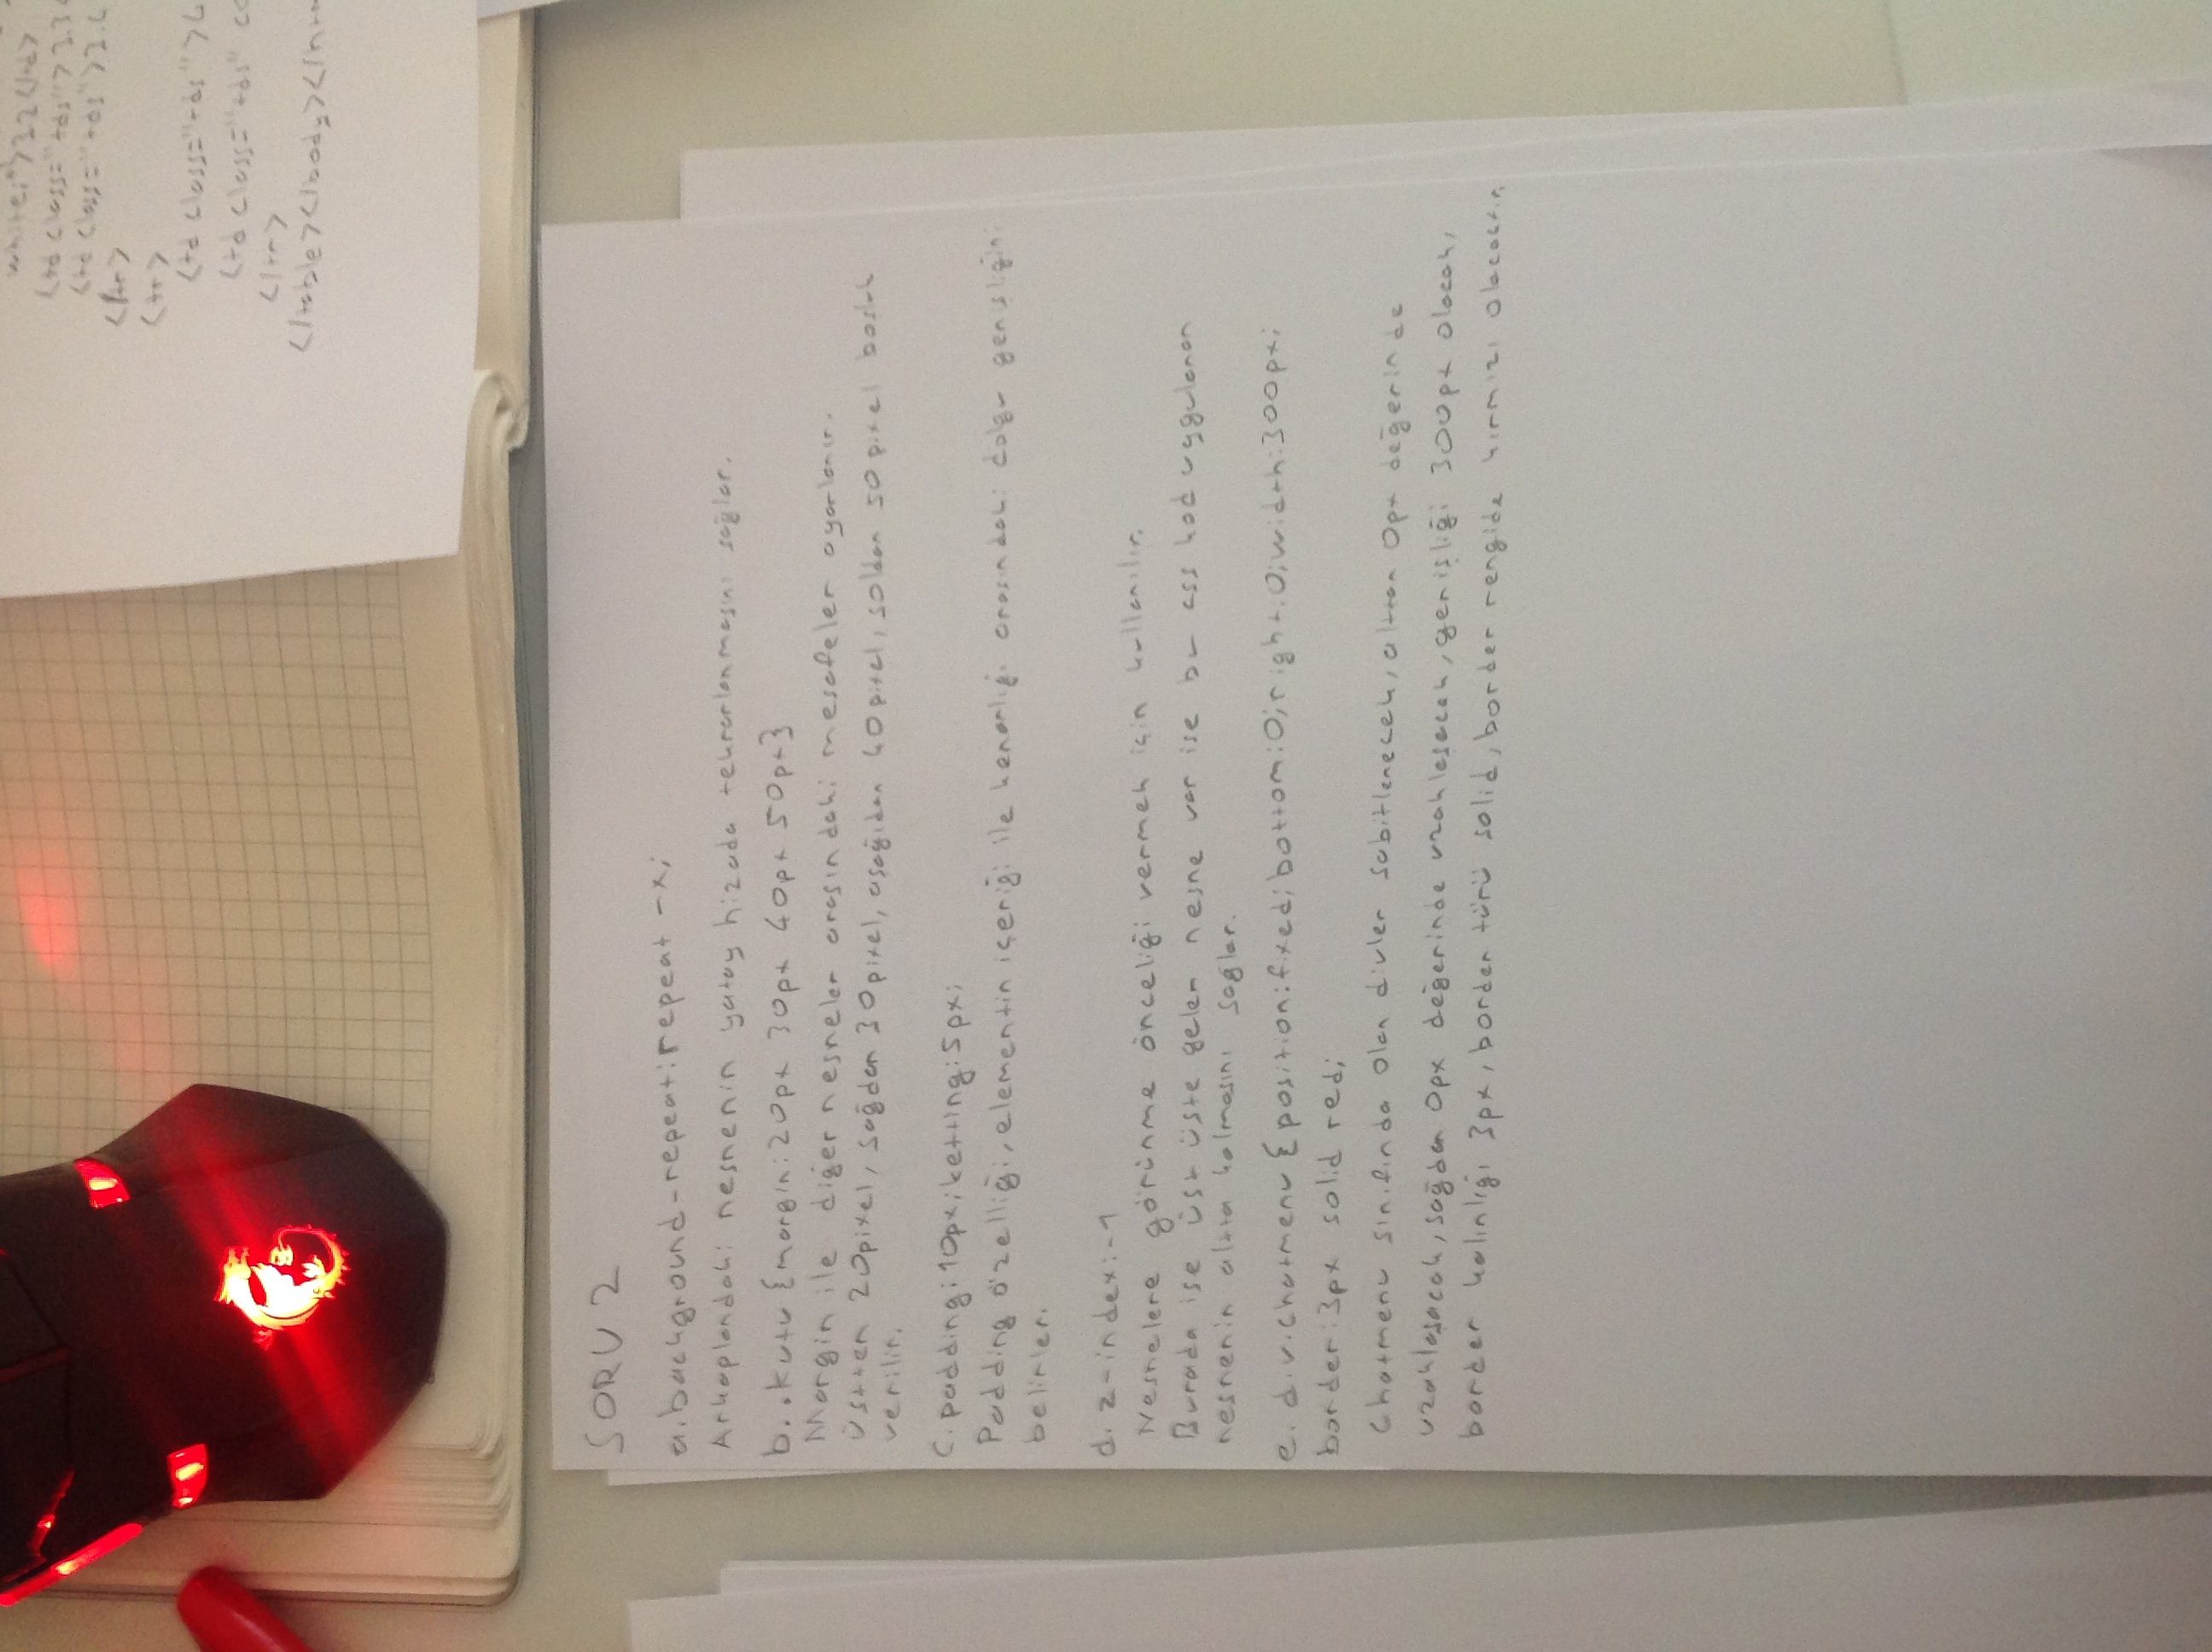 white;">3.2</td>
<td class="tds">3.3
<td class="tds">3.4
</tr>
<tr>
<td class="tds">4
<td class="tds" co
</tr>
</table></body></htm
SORU 2
a.background-repeat:repeat-x;
Arkaplandaki nesnenin yatay hizada tekrarlanmasını sağlar.
b. .kutu {margin:20px 30px 40px 50px}
Margin ile diğer nesneler arasındaki mesafeler ayarlanır.
Üstten 20pixel, sağdan 30pixel, aşağıdan 40pixel, soldan 50pixel boşluk
verilir.
c. padding:10px;ketting:5px;
Padding özelliği, elementin içeriği ile kenarlığı arasındaki dolgu genişliğini
belirler.
d. z-index:-1
Nesnelere görünme önceliği vermek için kullanılır.
Burada ise üst üste gelen nesne var ise bu css kod uygulanan
nesnenin altta kalmasını sağlar.
e. div.chatmenu {position:fixed;bottom:0;right:0;width:300px;
border:3px solid red;
Chatmenu sınıfında olan divler sabitlenecek, alttan 0px değerinde
uzaklaşacak, sağdan 0px değerinde uzaklaşacak, genişliği 300px olacak,
border kalınlığı 3px, border türü solid, border rengide kırmızı olacaktır.